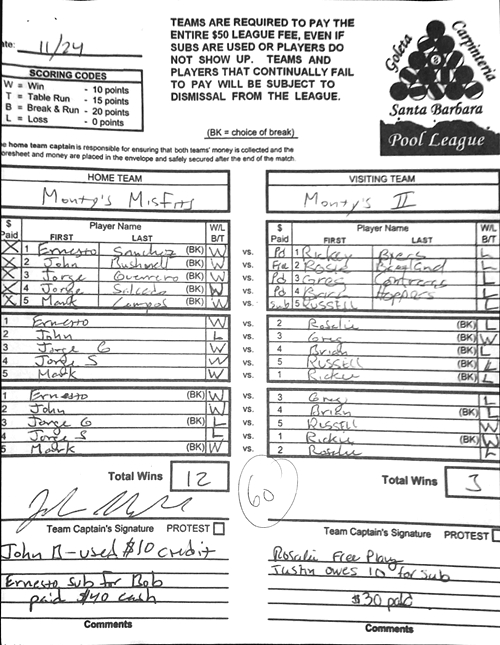 TEAMS ARE REQUIRED TO PAY THE
ENTIRE $50 LEAGUE FEE, EVEN IF
SUBS ARE USED OR PLAYERS DO
NOT SHOW UP. TEAMS AND
PLAYERS THAT CONTINUALLY FAIL
TO PAY WILL BE SUBJECT TO
DISMISSAL FROM THE LEAGUE.
(BK = choice of break)
ate: 11/24
SCORING CODES
W = Win - 10 points
T = Table Run - 15 points
B = Break & Run - 20 points
L = Loss - 0 points
Goleta Carpinteria
Santa Barbara
Pool League
e home team captain is responsible for ensuring that both teams' money is collected and the
oresheet and money are placed in the envelope and safely secured after the end of the match.
HOME TEAM
Monty's Misfits
VISITING TEAM
Monty's II
$ Paid Player Name FIRST LAST W/L B/T
$ Paid Player Name FIRST LAST W/L B/T
X 1 Ernesto Sanchez (BK) W vs. Pd 1 Rickey L
X 2 John Bushnell (BK) W vs. 2 Rosie L
X 3 Jorge Guerrero (BK) W vs. Pd 3 Greg Contreras L
X 4 Jorge Salcedo (BK) W vs. Pd 4 Brian Hoppers L
X 5 Mark Campos (BK) W vs. Sub 5 RUSSELL L
1 Ernesto W vs. 2 Rosalie (BK) L
2 John L vs. 3 Greg (BK) W
3 Jorge G W vs. 4 Brian (BK) L
4 Jorge S W vs. 5 RUSSELL (BK) L
5 Mark W vs. 1 Rickie (BK) L
1 Ernesto (BK) W vs. 3 Greg L
2 John W vs. 4 Brian (BK) L
3 Jorge G (BK) L vs. 5 RUSSELL W
4 Jorge S L vs. 1 Rickie (BK) W
5 Mark (BK) W vs. 2 Rosalie L
Total Wins 12
60
Total Wins 3
Team Captain's Signature PROTEST
Team Captain's Signature PROTEST
John B - used $10 credit
Ernesto sub for Bob
paid $40 cash
Comments
Rosalie Free Play
Justin owes 10 for sub
$30 paid
Comments